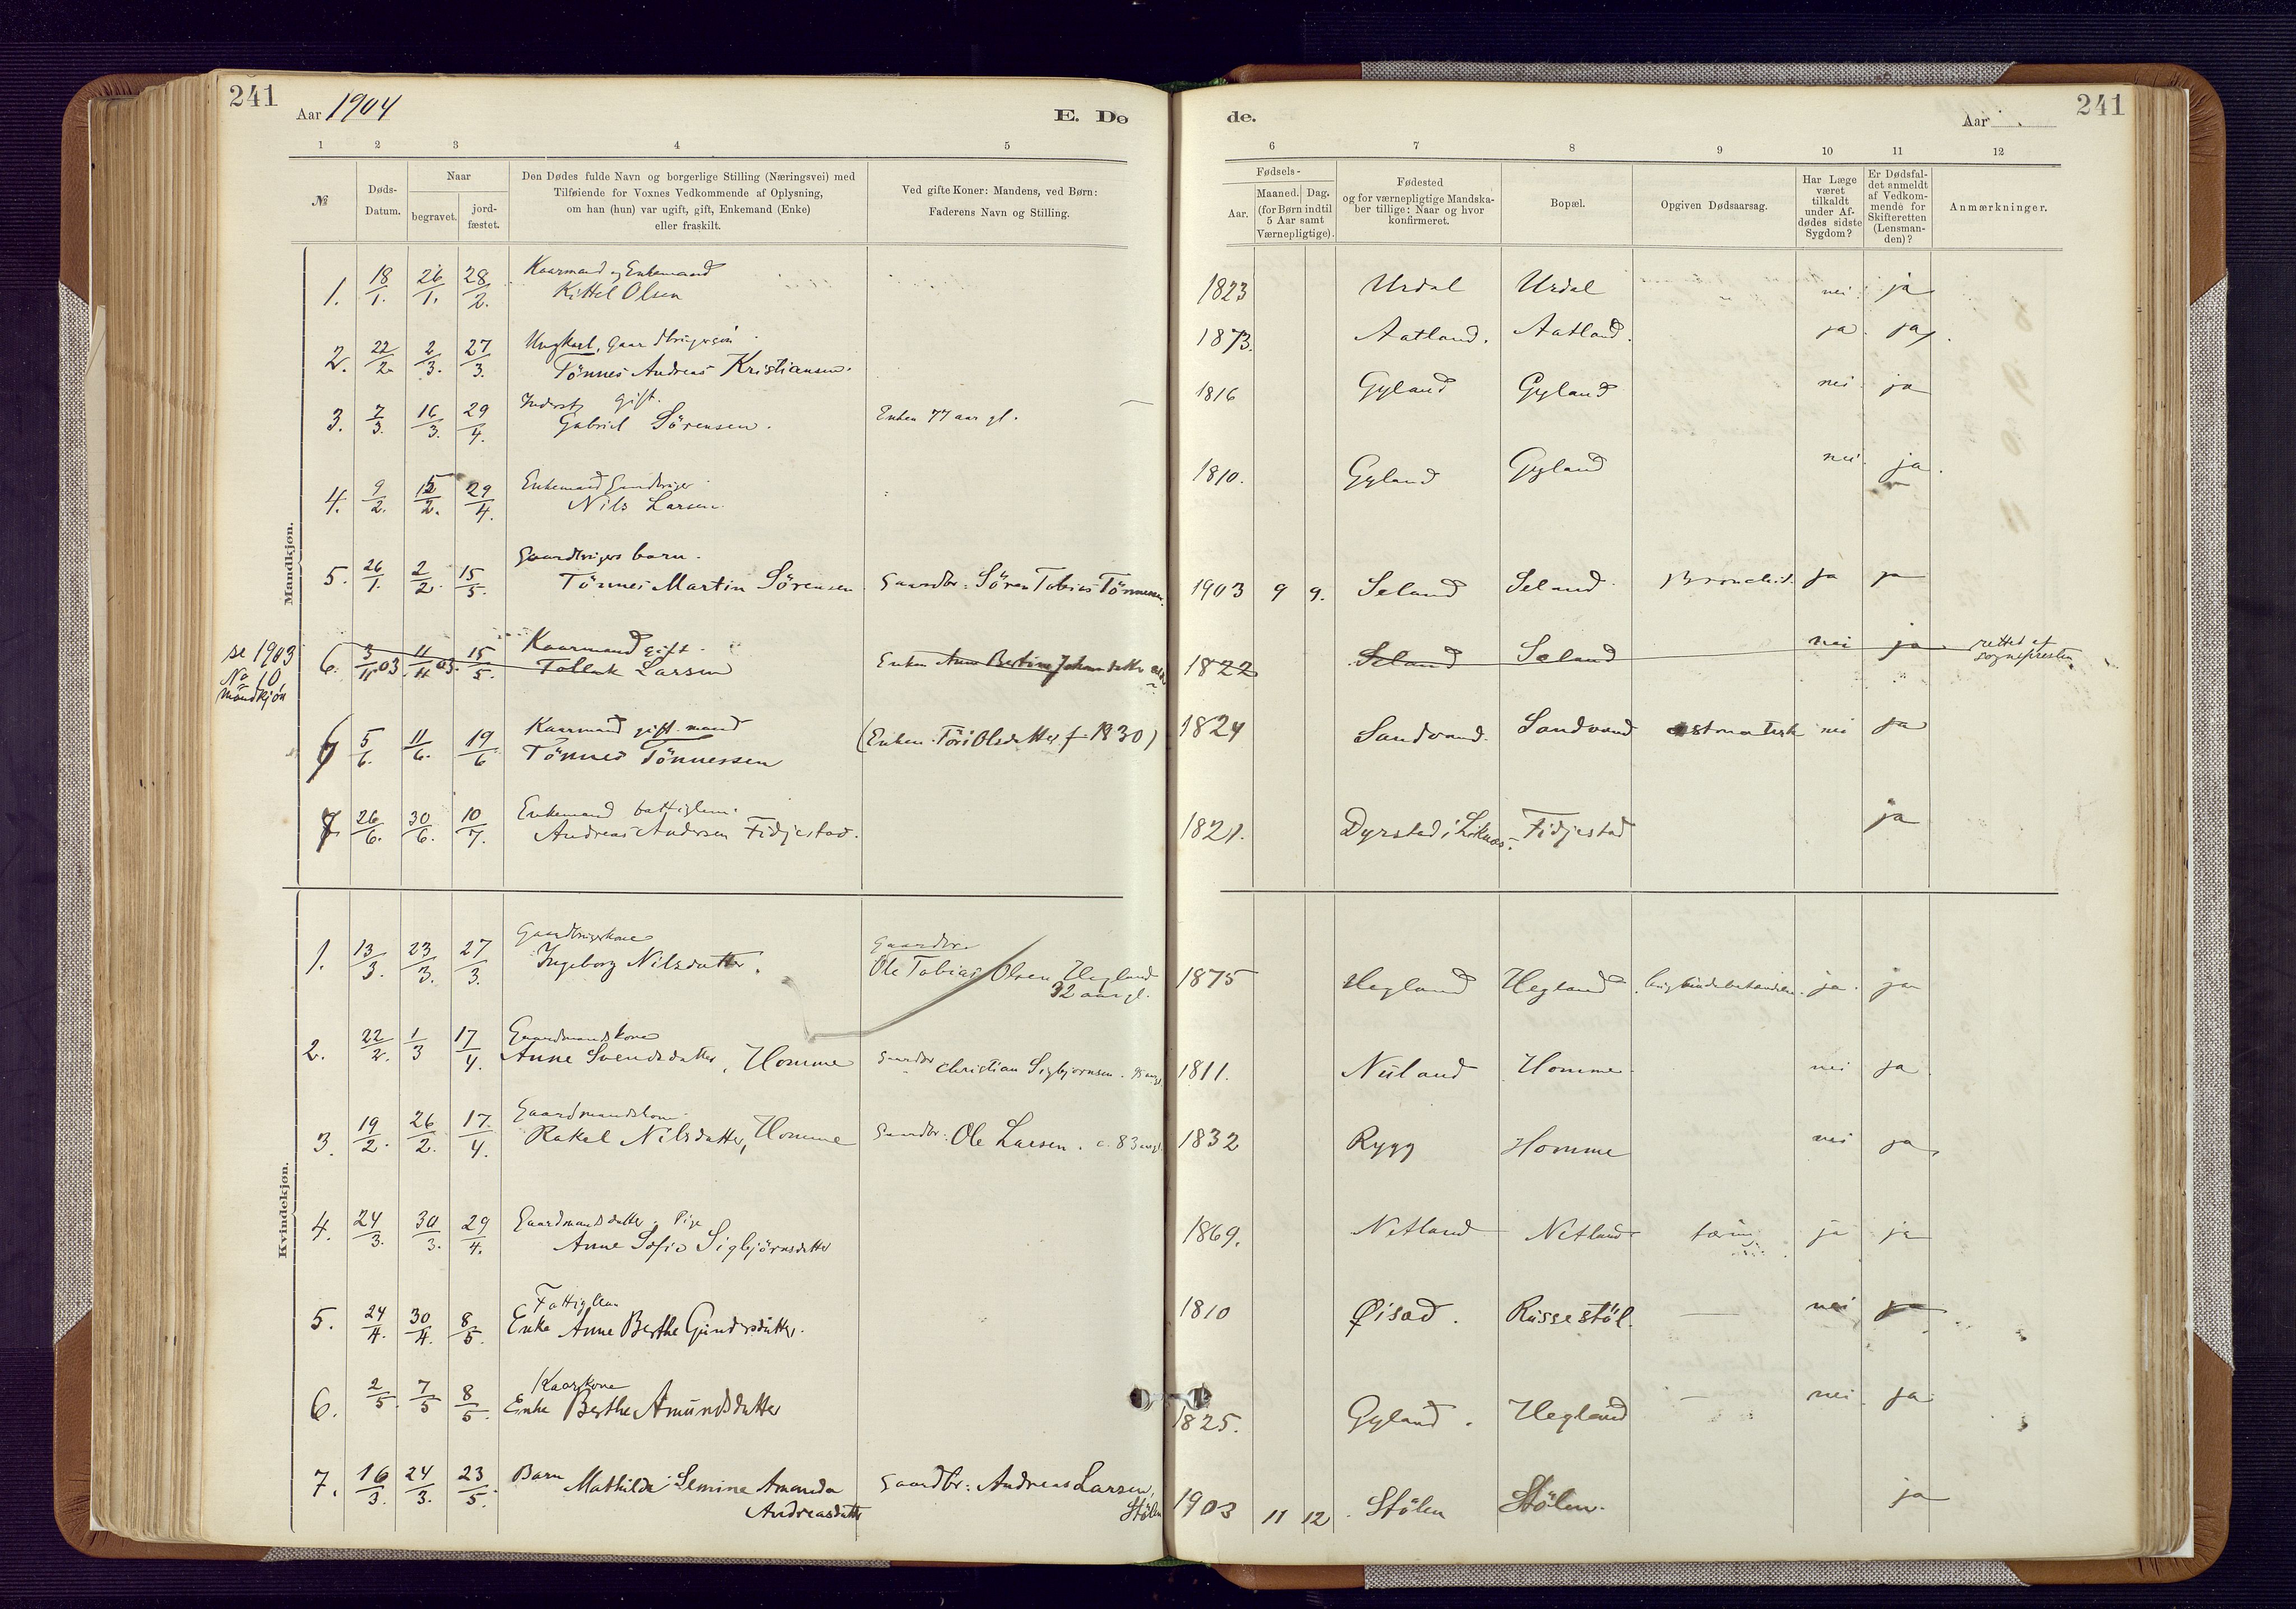 241
Aar 1904
E. Dø
de.
Aar
241
1 2 3 4 5 6 7 8 9 10 11 12
№
Døds-
Datum.
Naar
begravet.
jord-
fæstet.
Den Dødes fulde Navn og borgerlige Stilling (Næringsvei) med
Tilføiende for Voxnes Vedkommende af Oplysning,
om han (hun) var ugift, gift, Enkemand (Enke)
eller fraskilt.
Ved gifte Koner: Mandens, ved Børn:
Faderens Navn og Stilling.
Fødsels-
Aar.
Maaned. Dag.
(for Børn indtil
5 Aar samt
Værnepligtige).
Fødested
og for værnepligtige Mandska-
ber tillige: Naar og hvor
konfirmeret.
Bopæl.
Opgiven Dødsaarsag.
Har Læge
været
tilkaldt
under Af-
dødes sidste
Sygdom?
Er Dødsfal-
det anmeldt
af Vedkom-
mende for
Skifteretten
(Lensman-
den)?
Anmærkninger.
Mandkjøn.
Kaarmand og Enkemand
1. 18/1. 26/1. 28/2. Kittel Olsen 1823 Urdal Urdal nei ja
Ungkarl, Gaardbrugersøn
2. 22/2. 2/3. 27/3. Tönnes Andreas Kristiansen. 1873. Aatland. Aatland. ja ja.
Inderst, gift.
3. 7/3. 16/3. 29/4. Gabriel Sörensen. Enken 77 aar gl. 1816 Gyland Gyland nei ja
Enkemand Gaardbruger
4. 9/2. 15/2. 29/4. Nils Larsen. 1810. Gyland Gyland nei ja.
Gaardbrugers barn.
5. 26/1. 2/2. 15/5. Tönnes Martin Sörensen Gaardbr: Sören Tobias Tönnessen. 1903 9 9. Seland Seland Bronchit. ja ja
se 1903
No 10
mandkjön
Kaarmand gift.
6. 3/11 03. 11/11 03. 15/5. Tollak Larsen Enken Anne Bertine Johnsdatter 1822 Seland Seland nei ja rettet af
sognepresten
Kaarmand gift mand
6 5/6. 11/6. 19/6 Tönnes Tönnessen (Enken: Töri Olsdatter f. 1830) 1824 Sandvand. Sandvand astmatisk nei ja
Enkemand fattiglem.
7 26/6. 30/6. 10/7. Andreas Andersen Fidjestad. 1821. Dyrstad i Liknes. Fidjestad ja
Kvindekjøn.
Gaardbrugerkone
1. 13/3. 23/3. 27/3. Ingeborg Nilsdatter. Gaardbr.
Ole Tobias Olsen Hegland
32 aar gl. 1875 Hegland Hegland ja ja
Gaardmandskone
2. 22/2. 1/3 17/4. Anne Svendsdatter, Homme Gaardbr Christian Sigbjørnsen. 1811. Nuland Homme nei ja
Gaardmandskone
3. 19/2. 26/2. 17/4. Rakel Nilsdatter, Homme Gaardbr: Ole Larsen. c. 83 aar gl. 1832 Rygg Homme nei ja
Gaardmandsdatter, Pige
4. 24/3. 30/3. 29/4. Anne Sofie Sigbjörnsdatter 1869. Netland Netland tæring ja ja
Fattiglem
5. 24/4. 30/4. 8/5. Enke Anne Berthe Gundersdatter. 1810 Øisad. Russestöl. — nei ja
Kaarkone
6. 2/5. 7/5 8/5. Enke Berthe Amundsdatter 1825. Gyland. Hegland — nei ja
7. 16/3. 24/3. 23/5. Barn Mathilde Semine Amanda
Andreasdatter Gaardbr: Andreas Larsen,
Stölen 1903 11 12 Stölen Stölen. ja